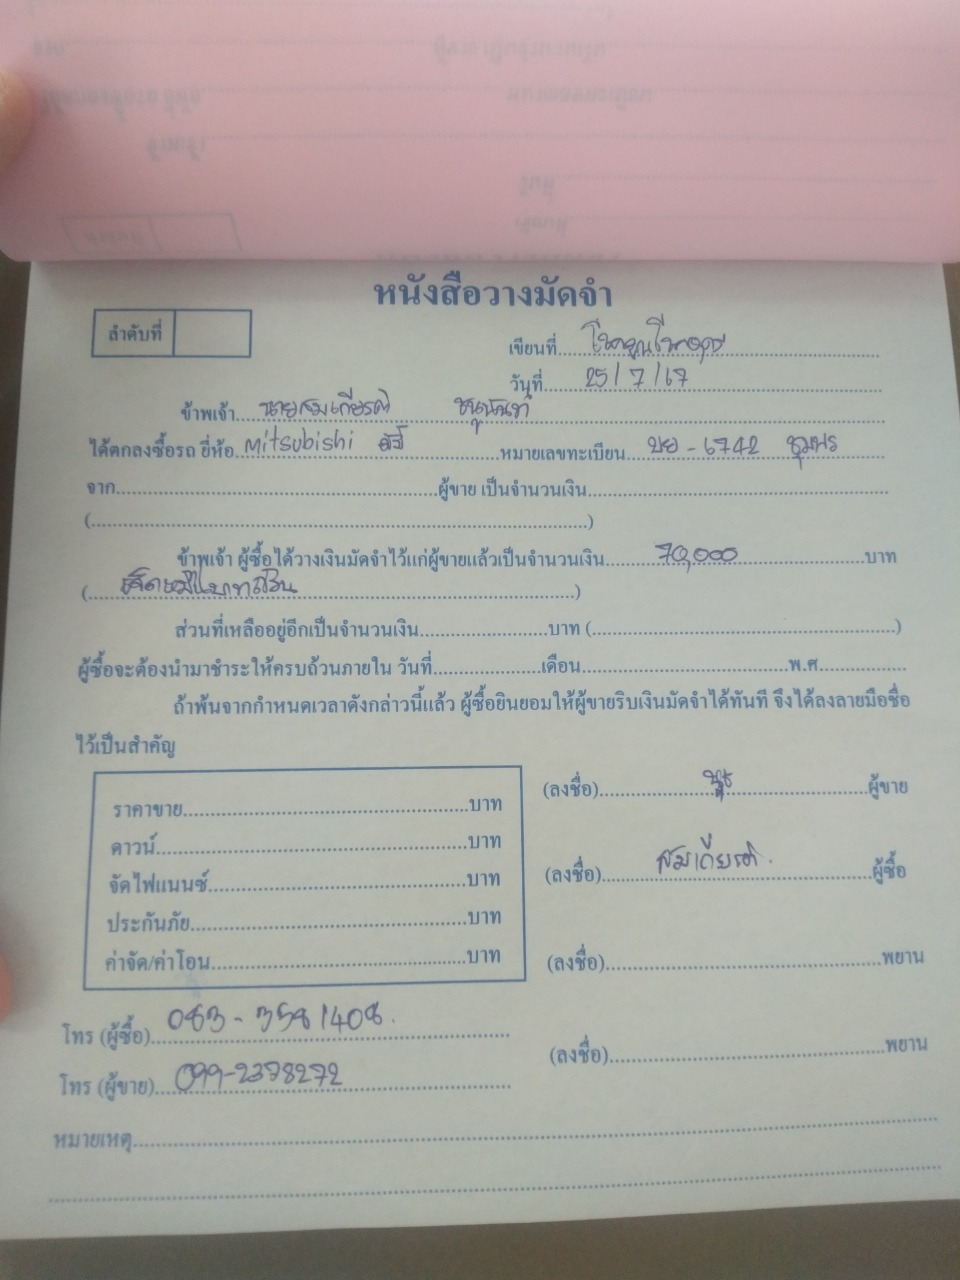 หนังสือวางมัดจำ
ลำดับที่
เขียนที่
วันที่ 25/7/67
ข้าพเจ้า นายสมเกียรติ
ได้ตกลงซื้อรถ ยี่ห้อ Mitsubishi หมายเลขทะเบียน บย - 6742 ชุมพร
จาก ผู้ขาย เป็นจำนวนเงิน
( )
ข้าพเจ้า ผู้ซื้อได้วางเงินมัดจำไว้แก่ผู้ขายแล้วเป็นจำนวนเงิน 70,000 บาท
(เจ็ดหมื่นบาทถ้วน)
ส่วนที่เหลืออยู่อีกเป็นจำนวนเงิน บาท ( )
ผู้ซื้อจะต้องนำมาชำระให้ครบถ้วนภายใน วันที่ เดือน พ.ศ.
ถ้าพ้นจากกำหนดเวลาดังกล่าวนี้แล้ว ผู้ซื้อยินยอมให้ผู้ขายริบเงินมัดจำได้ทันที จึงได้ลงลายมือชื่อ
ไว้เป็นสำคัญ
ราคาขาย บาท
ดาวน์ บาท
จัดไฟแนนซ์ บาท
ประกันภัย บาท
ค่าจัด/ค่าโอน บาท
(ลงชื่อ) ผู้ขาย
(ลงชื่อ) สมเกียรติ ผู้ซื้อ
(ลงชื่อ) พยาน
(ลงชื่อ) พยาน
โทร (ผู้ซื้อ) 083-3581408
โทร (ผู้ขาย) 099-2378272
หมายเหตุ